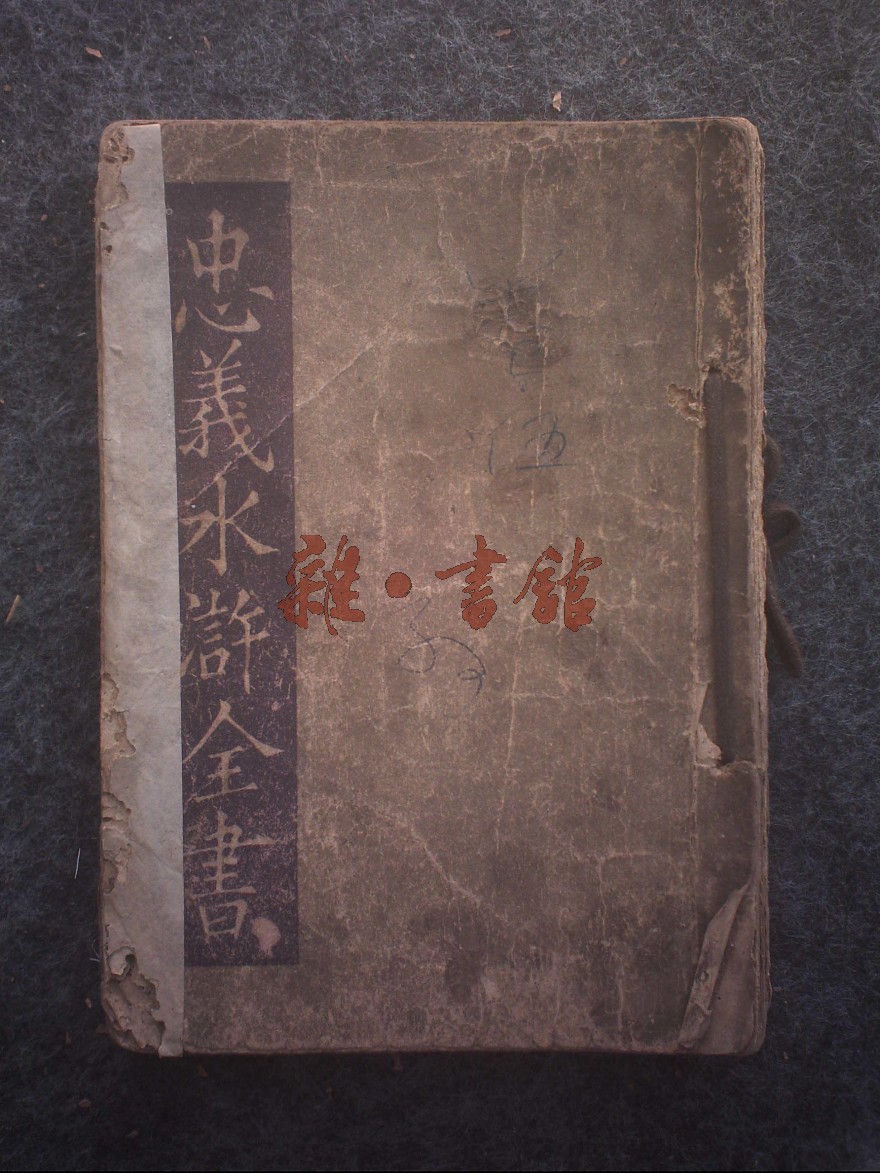 忠義水滸全書
伍
雜·書館